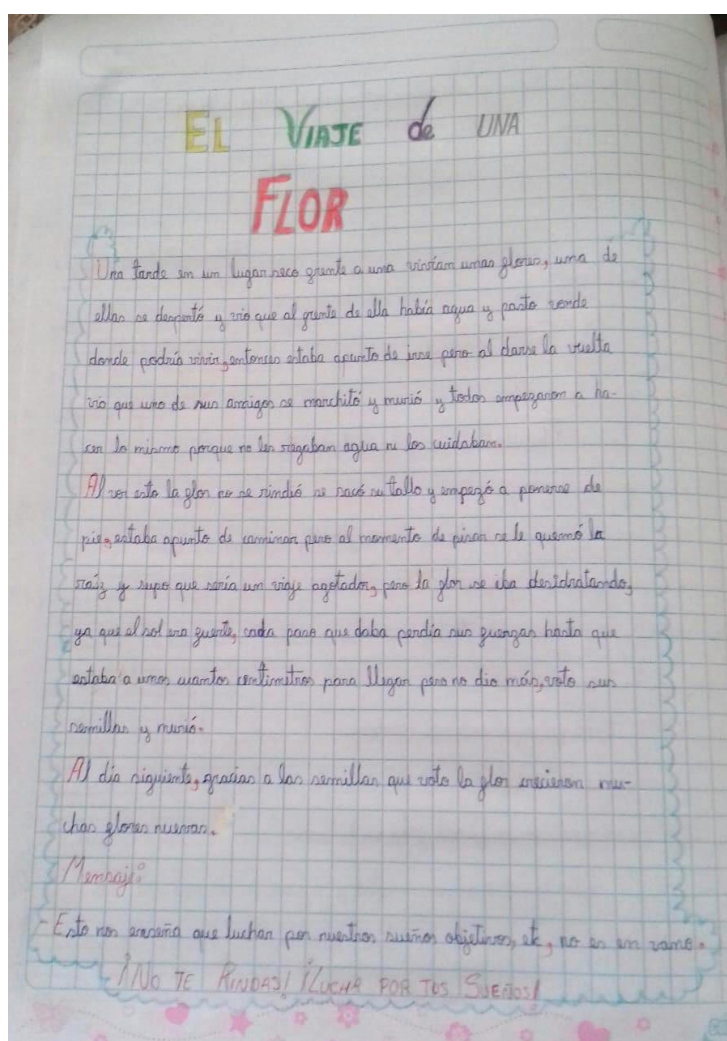 EL VIAJE de UNA
FLOR
Una tarde en un lugar seco frente a una vivían unas flores, una de
ellas se despertó y vio que al frente de ella había agua y pasto verde
donde podría vivir, entonces estaba apunto de irse pero al darse la vuelta
vio que uno de sus amigos se marchitó y murió y todos empezaron a ha-
cer lo mismo porque no les regaban agua ni los cuidaban.
Al ver esto la flor no se rindió se sacó su tallo y empezó a ponerse de
pie, estaba apunto de caminar pero al momento de pisar se le quemó la
raíz y supo que sería un viaje agotador, pero la flor se iba desidratando,
ya que el sol era fuerte, cada paso que daba perdía sus fuerzas hasta que
estaba a unos cuantos centímetros para llegar pero no dio más, voto sus
semillas y murió.
Al día siguiente, gracias a las semillas que voto la flor crecieron mu-
chas flores nuevas.
Mensaje:
-Esto nos enseña que luchar por nuestros sueños objetivos, etc, no es en vano.
¡NO TE RINDAS! ¡LUCHA POR TUS SUEÑOS!